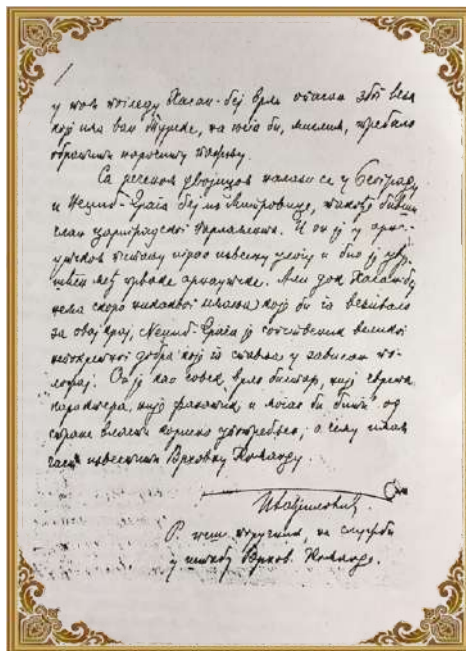 у том погледу Хасан-беј врло опасан због веза
које има ван Турске, на кога би, мислим, требало
обратити нарочиту пажњу.
Са реченом двојицом налази се у Београду
и Неџиб-Драга беј из Митровице, такође бивши
члан цариградског Парламента. И он је у арна-
утском питању играо извесну улогу и био је
међ прваке арнаутске. Али док Хасан-беј
нема скоро никаквог имања које би га везивало
за овај крај, Неџиб-Драга је сопственик великог
непокретног добра које га ставља у зависан по-
ложај. Он је као човек врло бистар, није
карактера, није фанатик и могао би бити од
стране власти корисно употребљен, о чему имам
част известити Врховну Команду.
Р. пеш. поручник, на служби
у штабу Врхов. Команде.